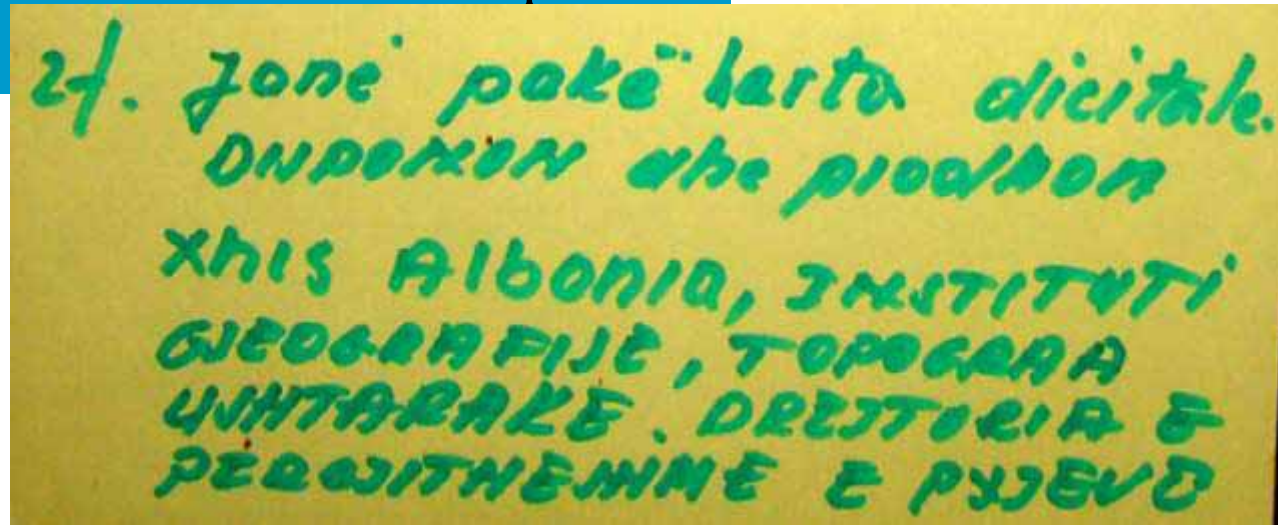 2f. Janë pakë harta dicitale.
DNPOMXON dhe prodhon
XhIS Albania, INSTITUTI
GJEOGRAFIJE, TOPOGRAA
USHTARAKE. DREJTORIA E
PERGJITHESHME E PYJEVE